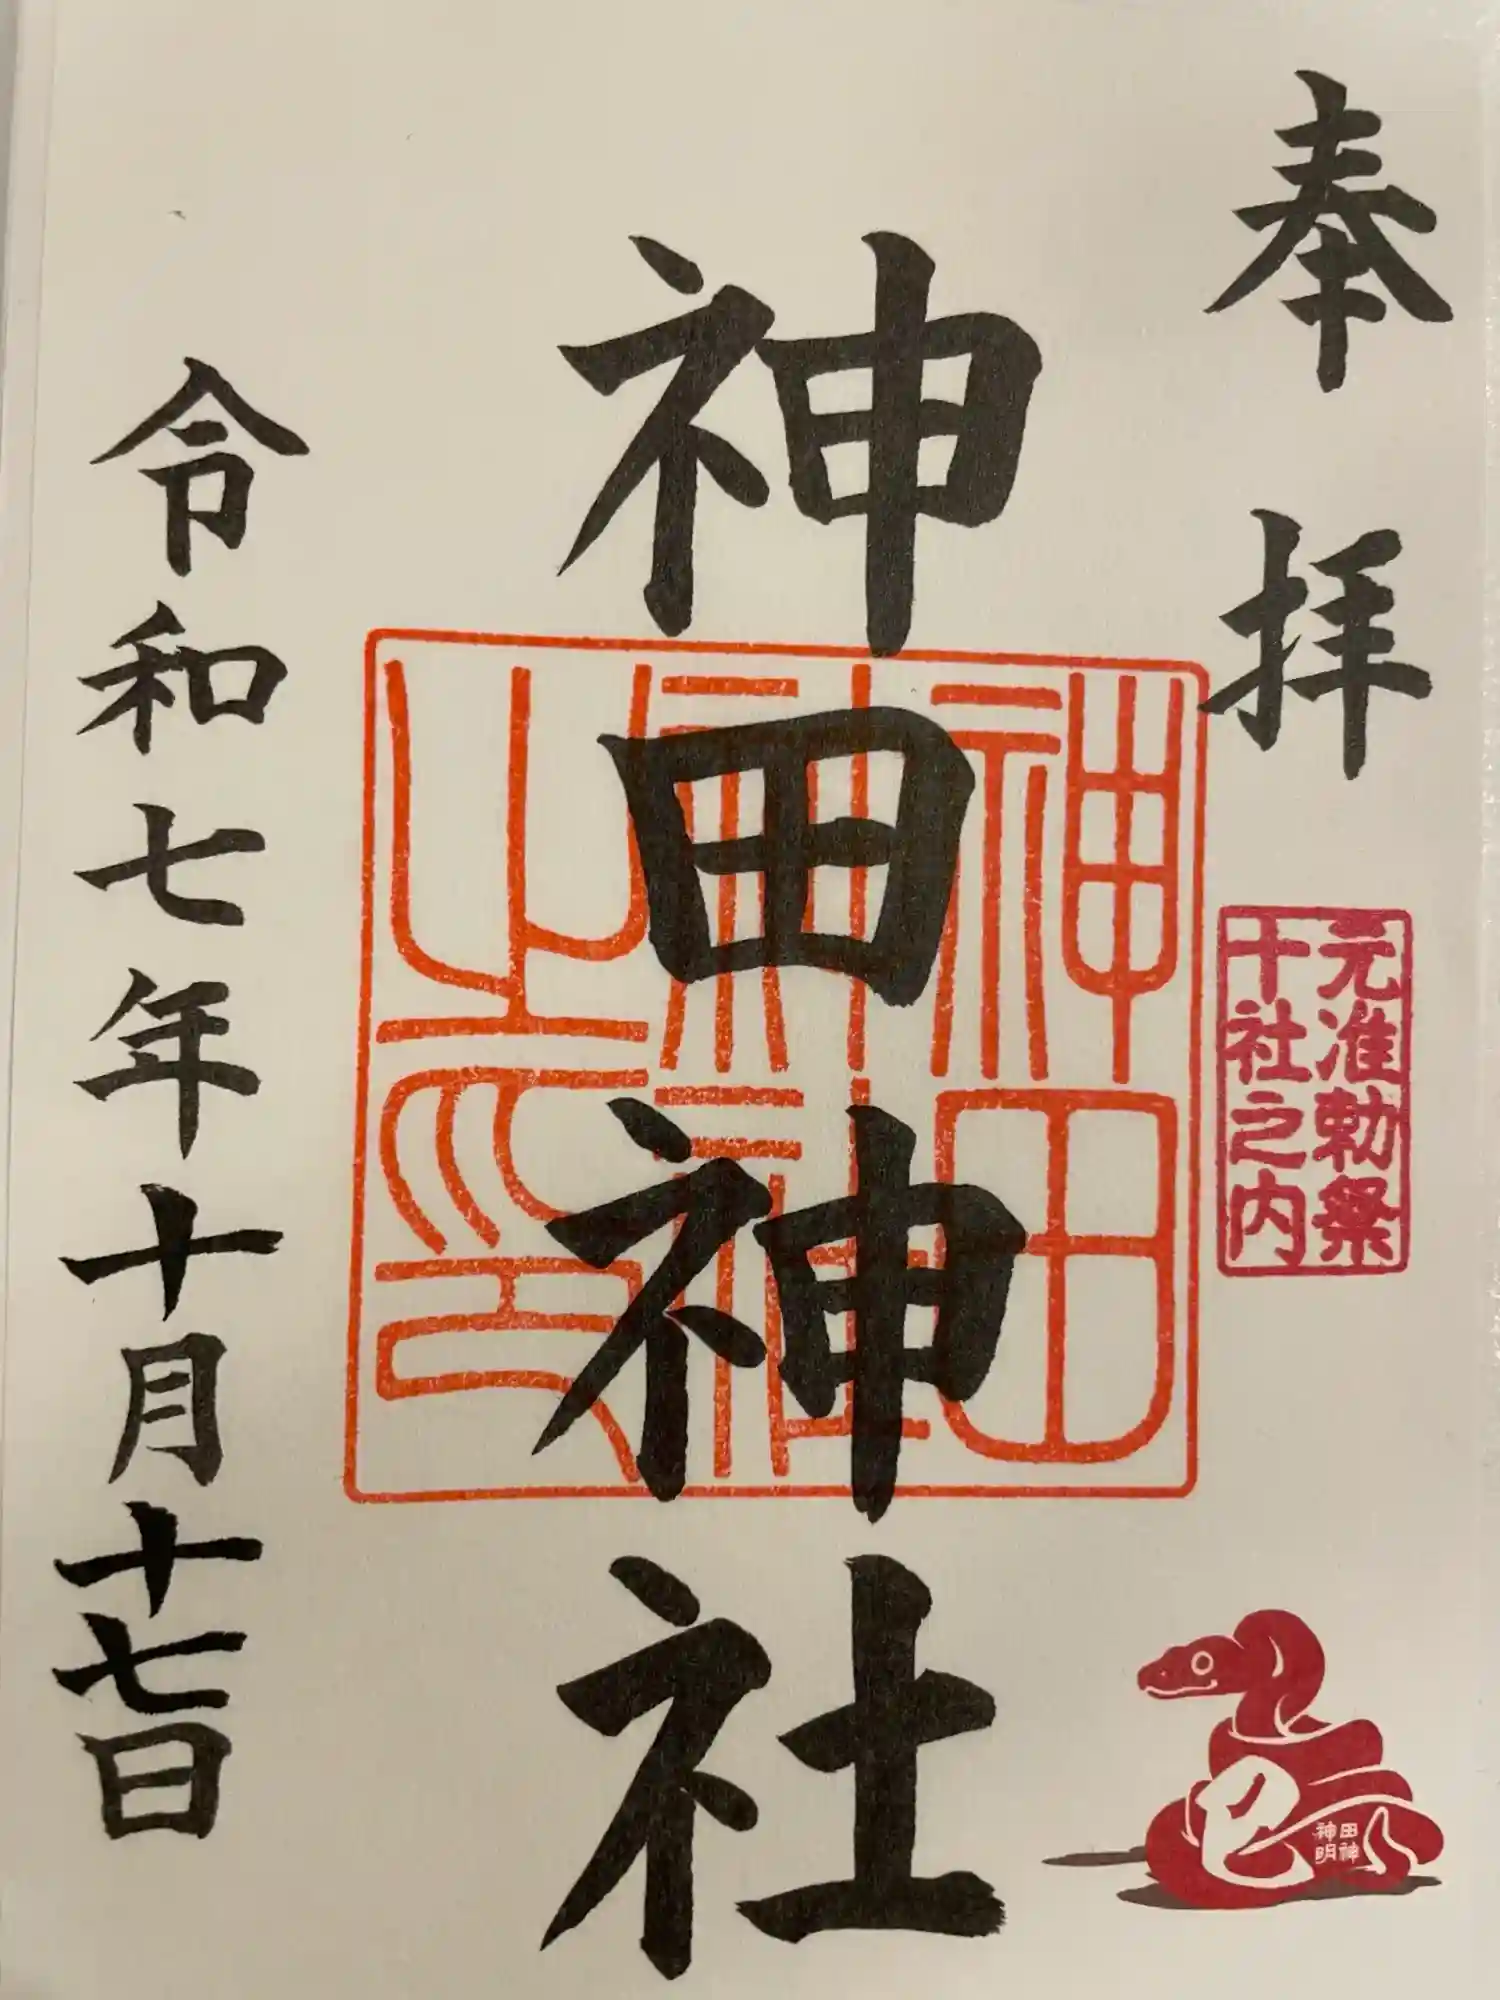 奉拝
元准勅祭
十社之内
巳
神田
神明
神田神社
神田
神社
之印
令和七年十月十七日